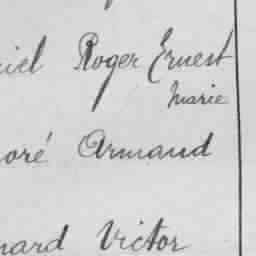 iel Roger Ernest
Marie
oré Armand
nard Victor